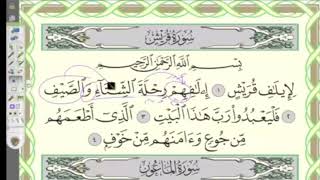 سورة قريش
بسم الله الرحمن الرحيم
لإيلف قريش ١ إلفهم رحلة الشتاء والصيف
٢ فليعبدوا رب هذا البيت ٣ الذى أطعمهم
من جوع وءامنهم من خوف ٤
سورة الماعون